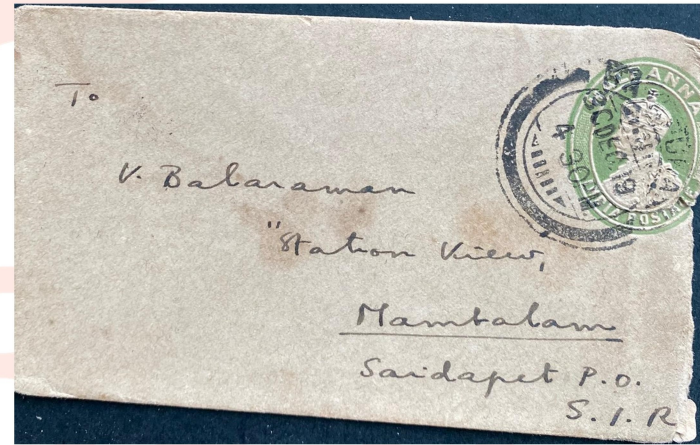 To
V. Balaraman
"Station View,
Mambalam
Saidapet P.O.
S. I. R
ANNA
4 30PM
INDIA POSTAGE